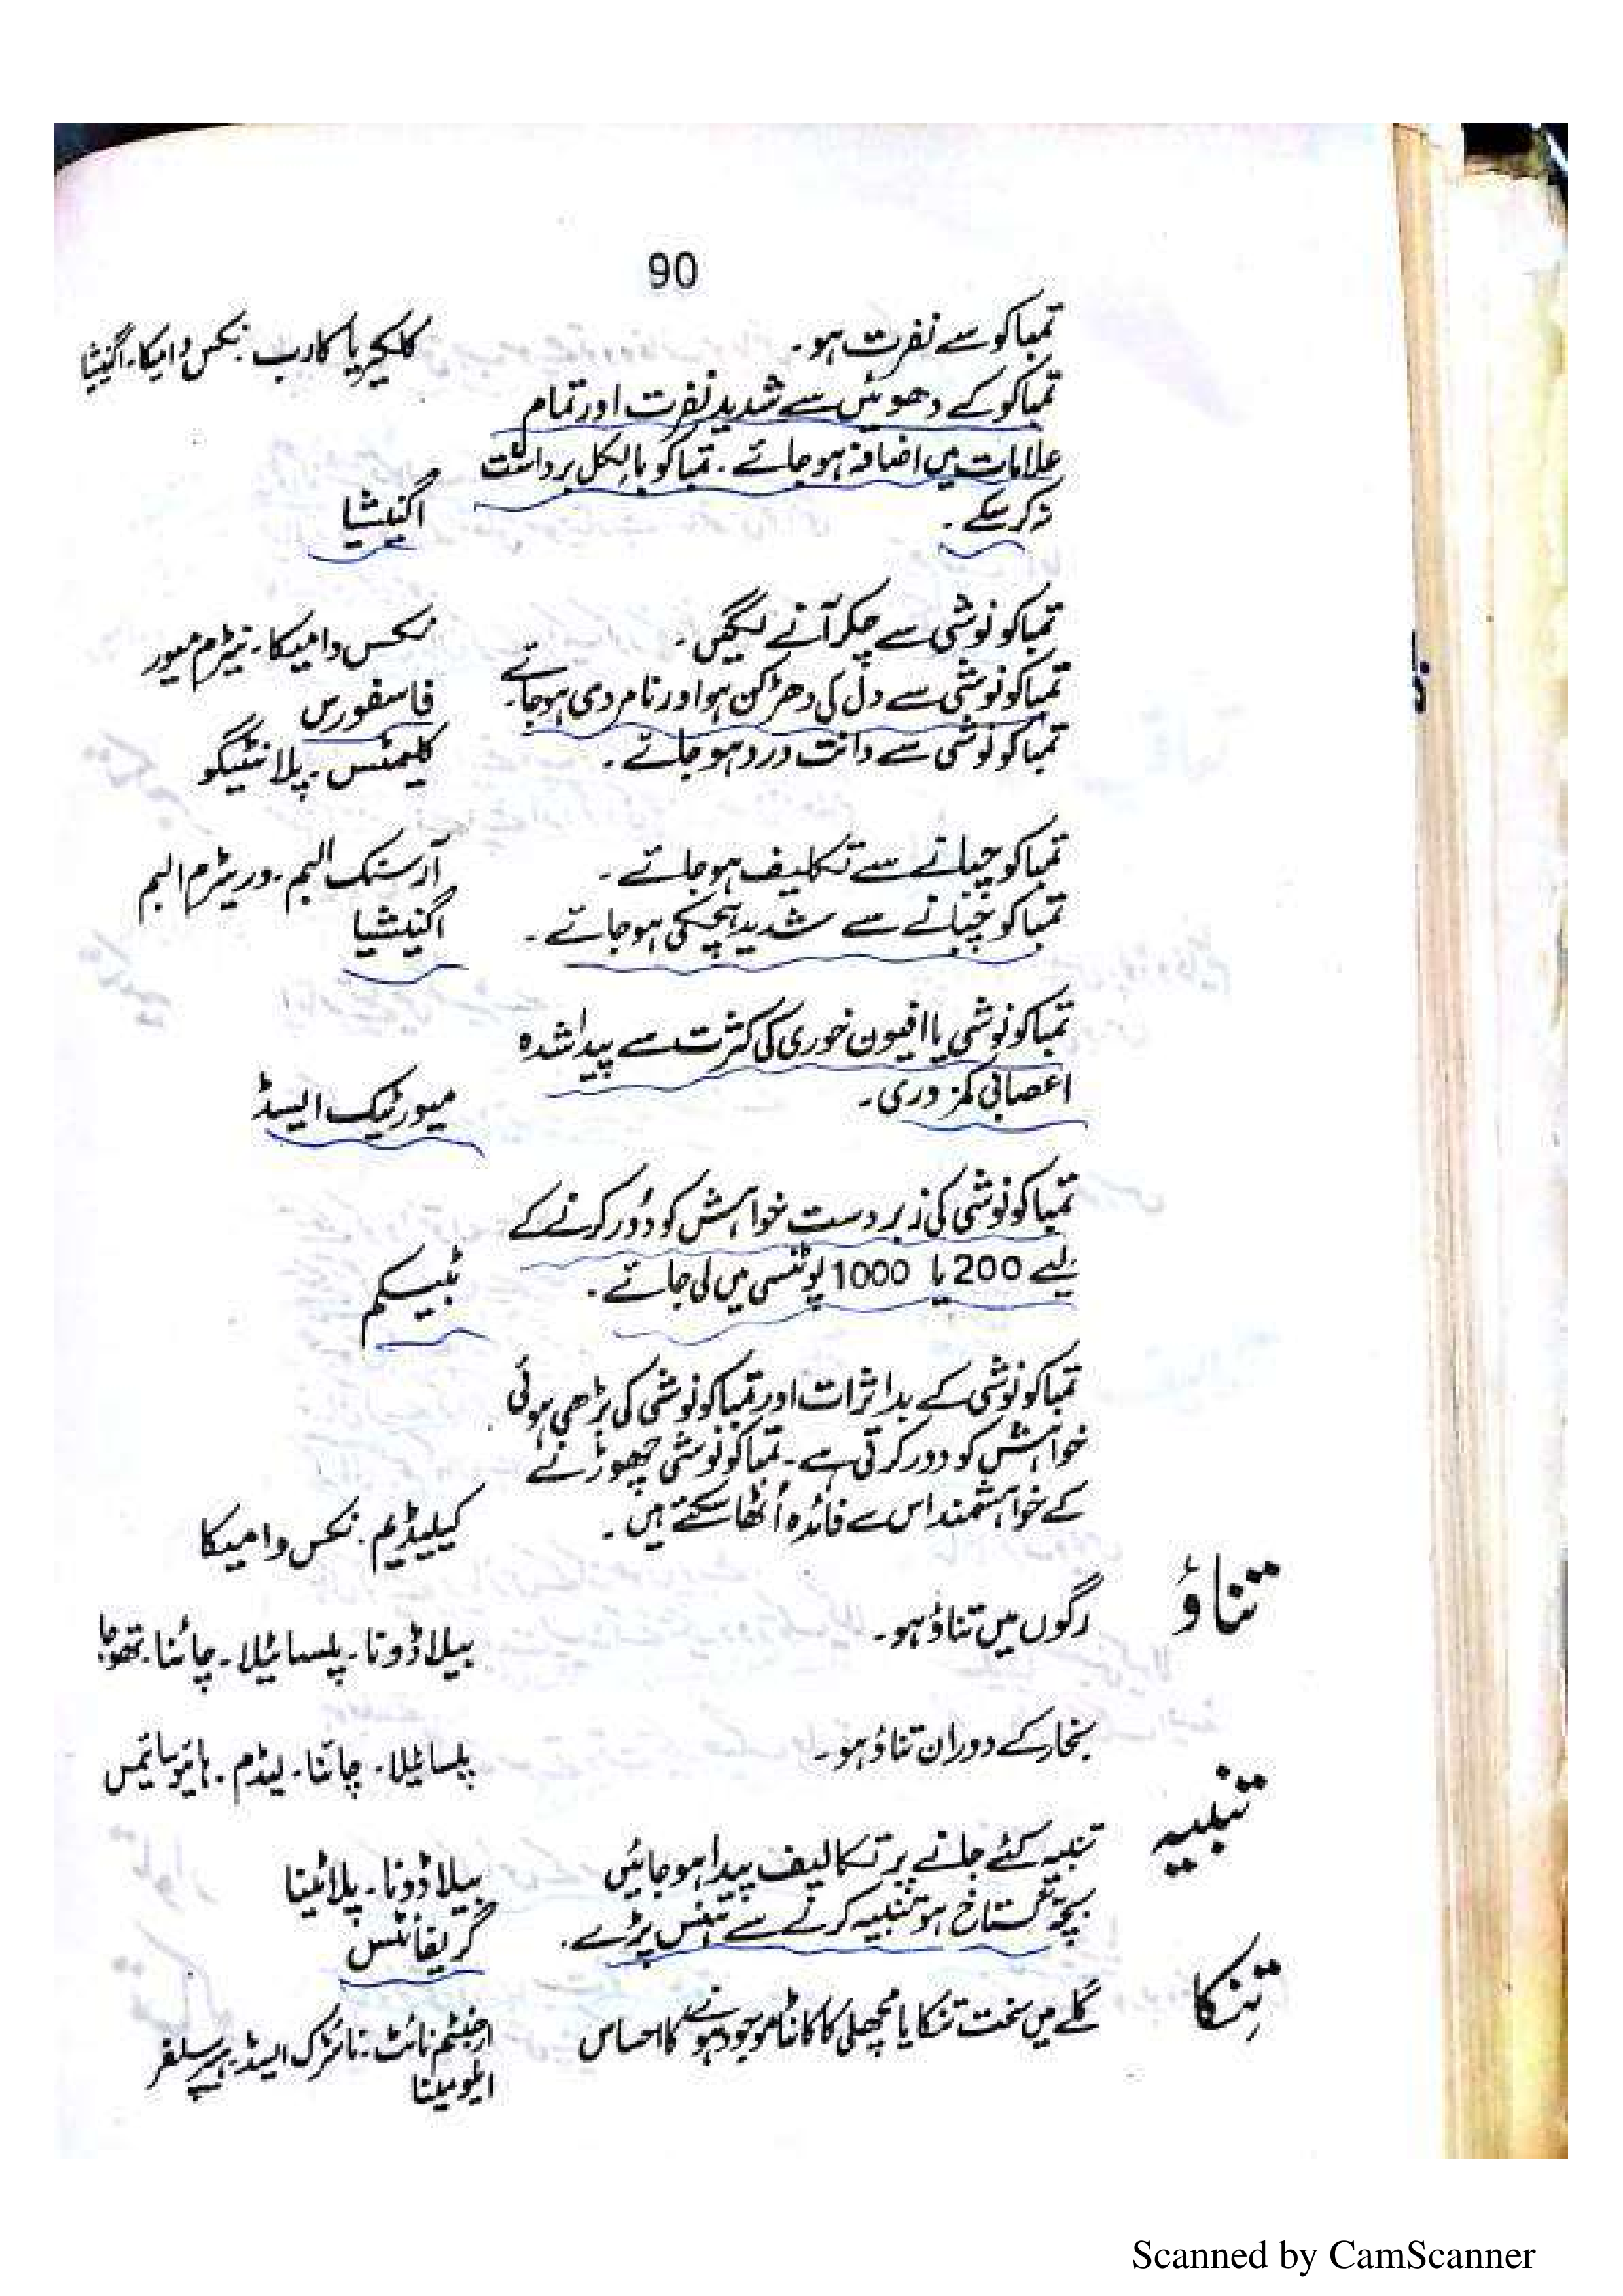 90
تمباکو سے نفرت ہو۔ کلکیریا کارب۔ نکس وامیکا۔ اگنیشیا
تمباکو کے دھوئیں سے شدید نفرت اور تمام
علامات میں اضافہ ہو جائے۔ تمباکو بالکل برداشت
نہ کر سکے۔ اگنیشیا
تمباکو نوشی سے چکر آنے لگیں۔ نکس وامیکا۔ نیٹرم میور
تمباکو نوشی سے دل کی دھڑکن ہو اور نامردی ہو جائے۔ فاسفورس
تمباکو نوشی سے دانت درد ہو جائے۔ کلیمٹس۔ پلانٹیگو
تمباکو چبانے سے تکلیف ہو جائے۔ آرسنک البم۔ وریٹرم البم
تمباکو چبانے سے شدید ہچکی ہو جائے۔ اگنیشیا
تمباکو نوشی یا افیون خوری کی کثرت سے پیدا شدہ
اعصابی کمزوری۔ میورٹیک ایسڈ
تمباکو نوشی کی زبردست خواہش کو دُور کرنے کے
لیے 200 یا 1000 پوٹنسی میں لی جائے۔ ٹبیکم
تمباکو نوشی کے بد اثرات اور تمباکو نوشی کی بڑھی ہوئی
خواہش کو دور کرتی ہے۔ تمباکو نوشی چھوڑنے
کے خواہشمند اس سے فائدہ اُٹھا سکتے ہیں۔ کیلیڈیم۔ نکس وامیکا
تناؤ
رگوں میں تناؤ ہو۔ بیلاڈونا۔ پلساٹیلا۔ چائنا۔ تھوجا
بخار کے دوران تناؤ ہو۔ پلساٹیلا۔ چائنا۔ لیڈم۔ ہائیوسائمس
تنبیہ
تنبیہ کئے جانے پر تکالیف پیدا ہو جائیں بیلاڈونا۔ پلاٹینا
بچہ گستاخ ہو تنبیہ کرنے سے ہنس پڑے۔ گریفائٹس
تِنکا
گلے میں سخت تنکا یا مچھلی کا کانٹا موجود ہونے کا احساس ارجنٹم نائٹ۔ نائٹرک ایسڈ۔ ہیپر سلفر
ایلومینا
Scanned by CamScanner